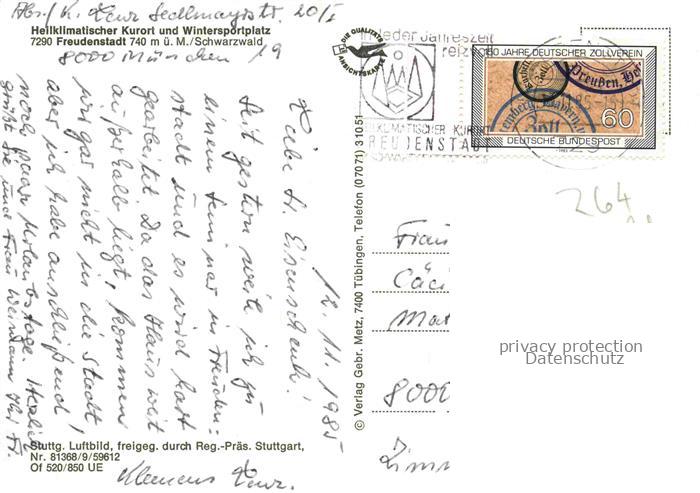 Abs./ K. Sedlmayrstr. 20/I
8000 München 19
Heilklimatischer Kurort und Wintersportplatz
7290 Freudenstadt 740 m ü. M./Schwarzwald
DIE QUALITÄTS
ANSICHTSKARTE
12. 11. 1985
Liebe H.
Seit gestern weile ich zu
einem Seminar in Freuden-
stadt und es wird hart
gearbeitet. Da das Haus weit
außerhalb liegt, kommen
wir gar nicht in die Stadt,
aber ich habe anschließend
noch paar Urlaubstage. Herzlich
grüßt Sie und Frau Ihr
Klemens
Stuttg. Luftbild, freigeg. durch Reg.-Präs. Stuttgart,
Nr. 81368/9/59612
Of 520/850 UE
© Verlag Gebr. Metz, 7400 Tübingen, Telefon (07071) 31051
in jeder Jahreszeit
reiz
HEILKLIMATISCHER KURORT
FREUDENSTADT
150 JAHRE DEUTSCHER ZOLLVEREIN
Zoll
Preußen,
Zoll
60
DEUTSCHE BUNDESPOST
264
Frau
Cäci
Mat
8000
Zimm
privacy protection
Datenschutz